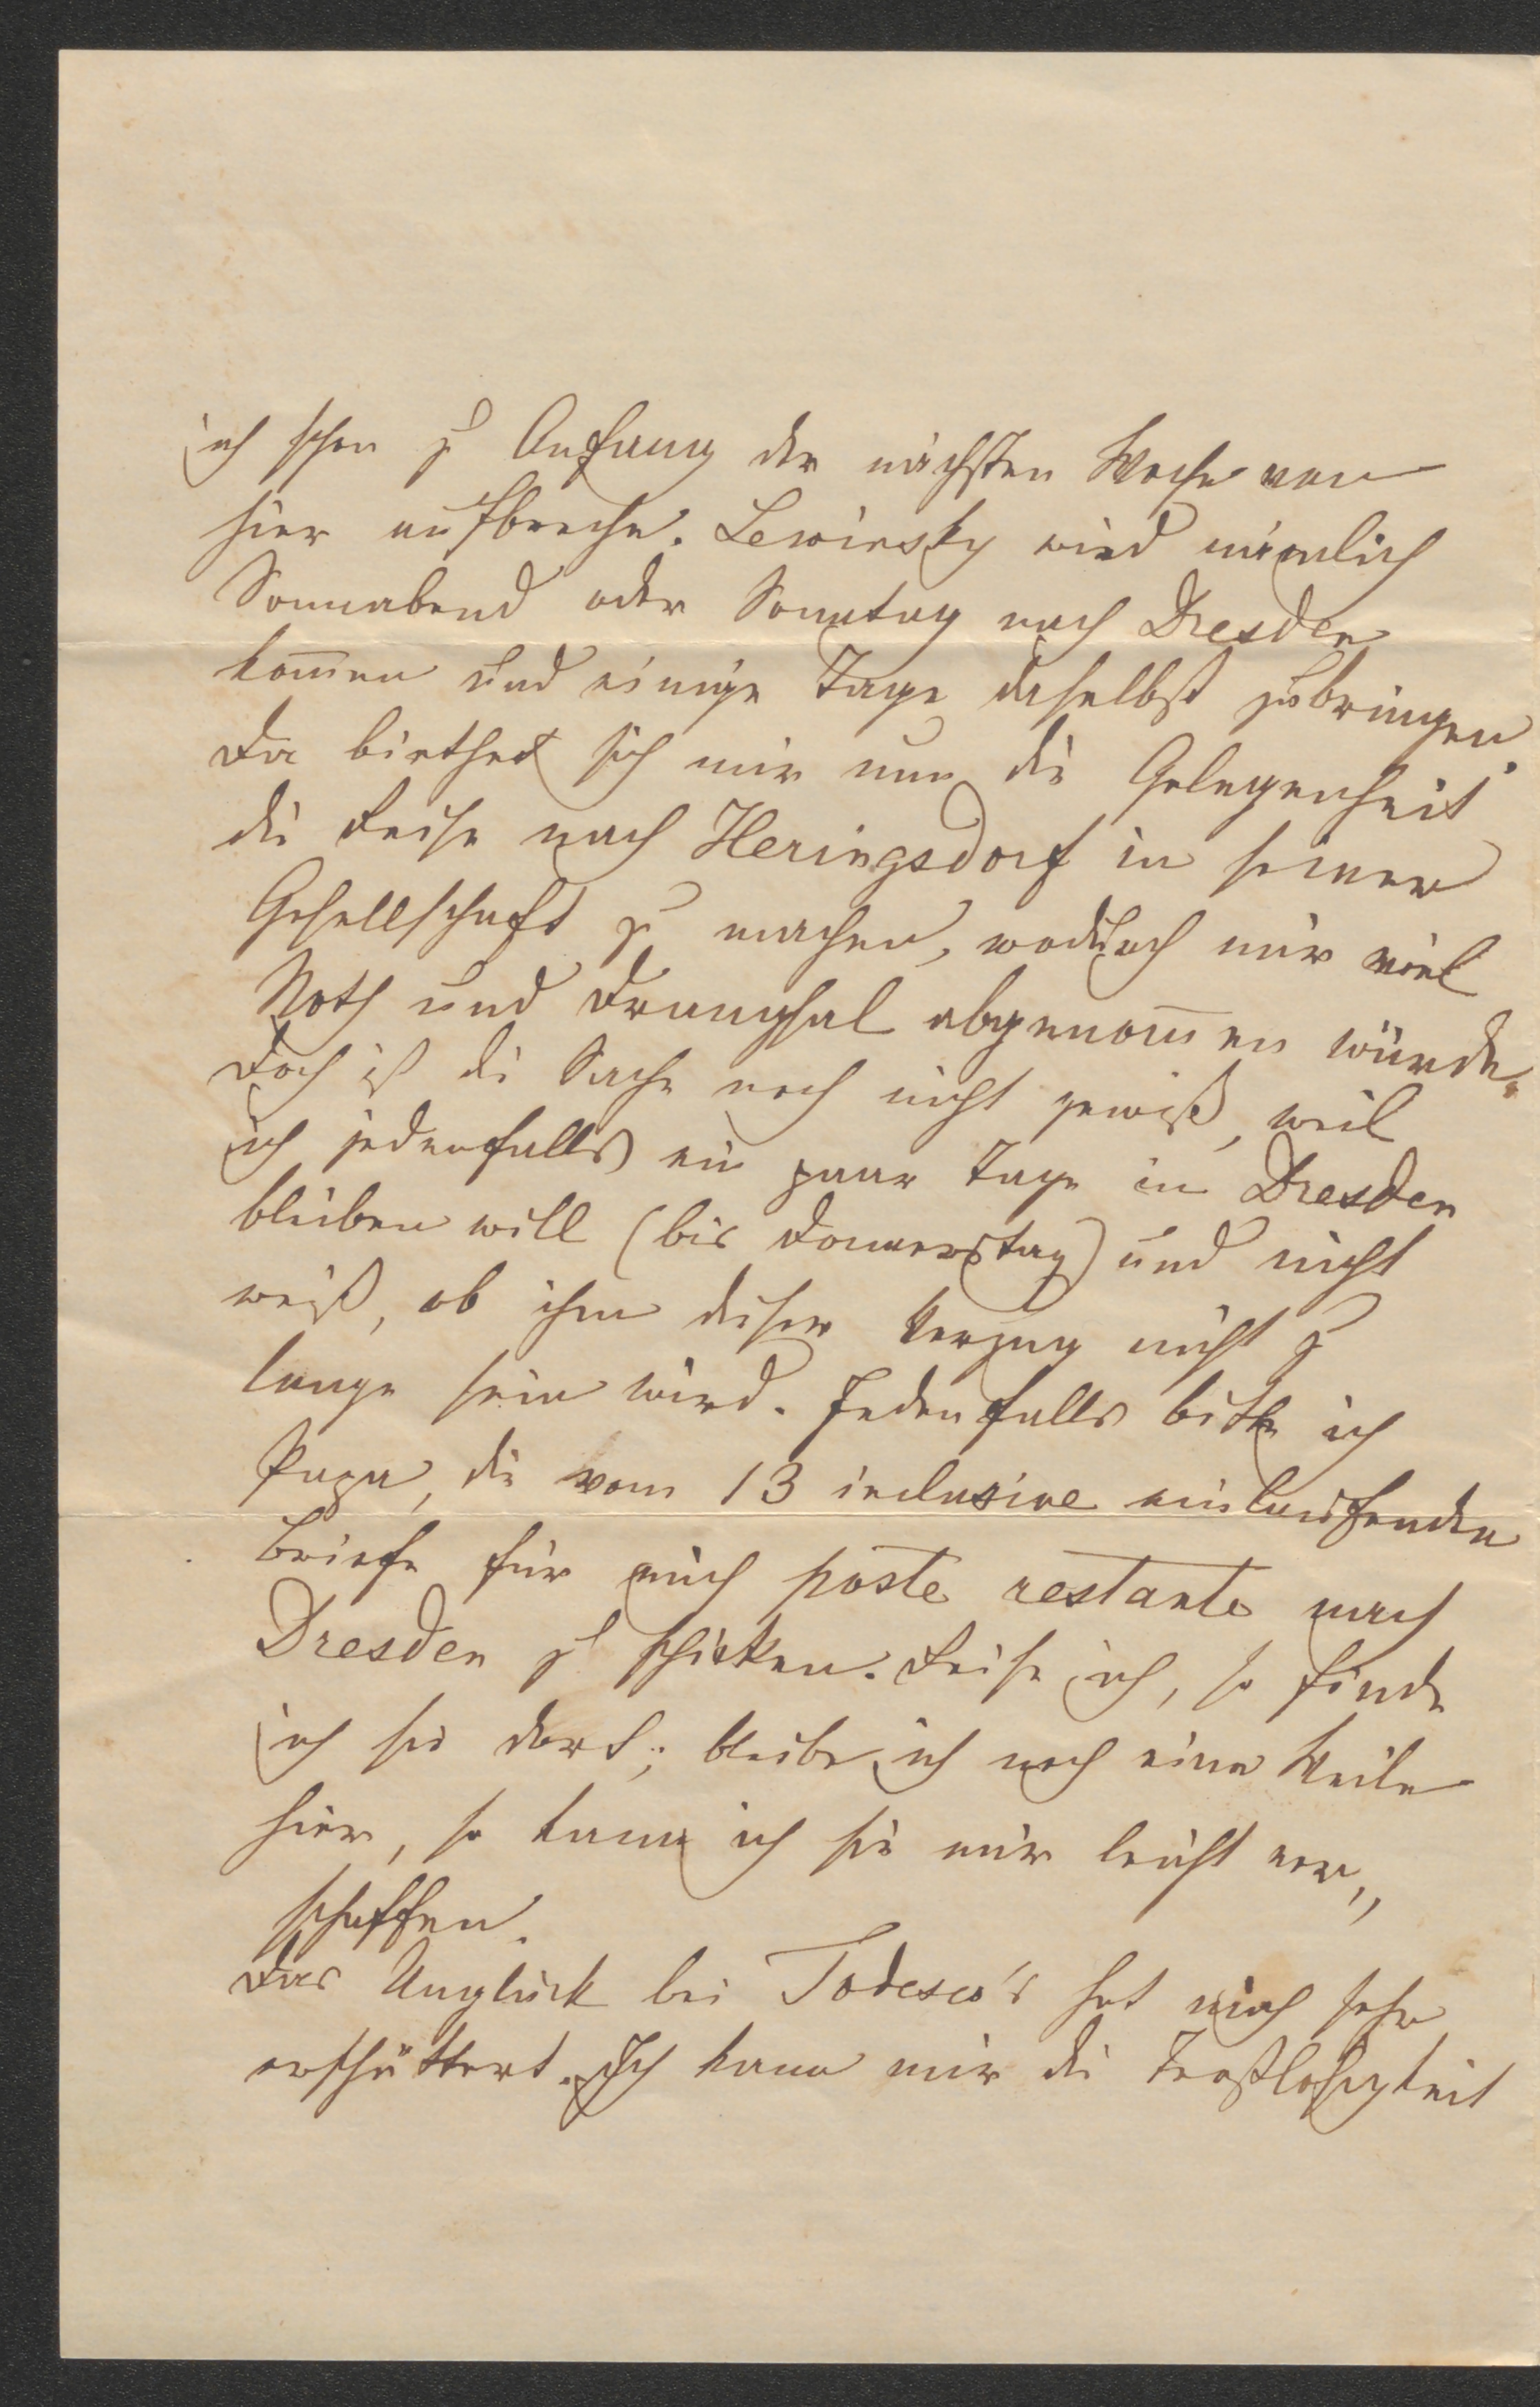 ich schon zu Anfang der nächsten Woche von
hier aufbreche. Lewinsky wird nämlich
Sonnabend oder Sonntag nach Dresden
kom̅en und einige Tage daselbst zubringen.
Da biethet sich mir nun die Gelegenheit
die Reise nach Heringsdorf in seiner
Gesellschaft zu machen, wodurch mir viel
Noth und Drangsal abgenom̅en würde.
Doch ist die Sache noch nicht gewiß, weil
ich jedenfalls ein paar Tage in Dresden
bleiben will (bis Donnerstag) und nicht
weiß, ob ihm dieser Verzug nicht zu
lange sein wird. Jedenfalls bitte ich
Papa, die vom 13 inclusive einlaufenden
Briefe für mich poste restante nach
Dresden zu schicken. Reise ich, so finde
ich sie dort; bleibe ich noch eine Weile
hier, so kann ich sie mir leicht ver„
schaffen.
Das Unglück bei Todesco's hat mich sehr
erschüttert. Ich kann mir die Trostlosigkeit